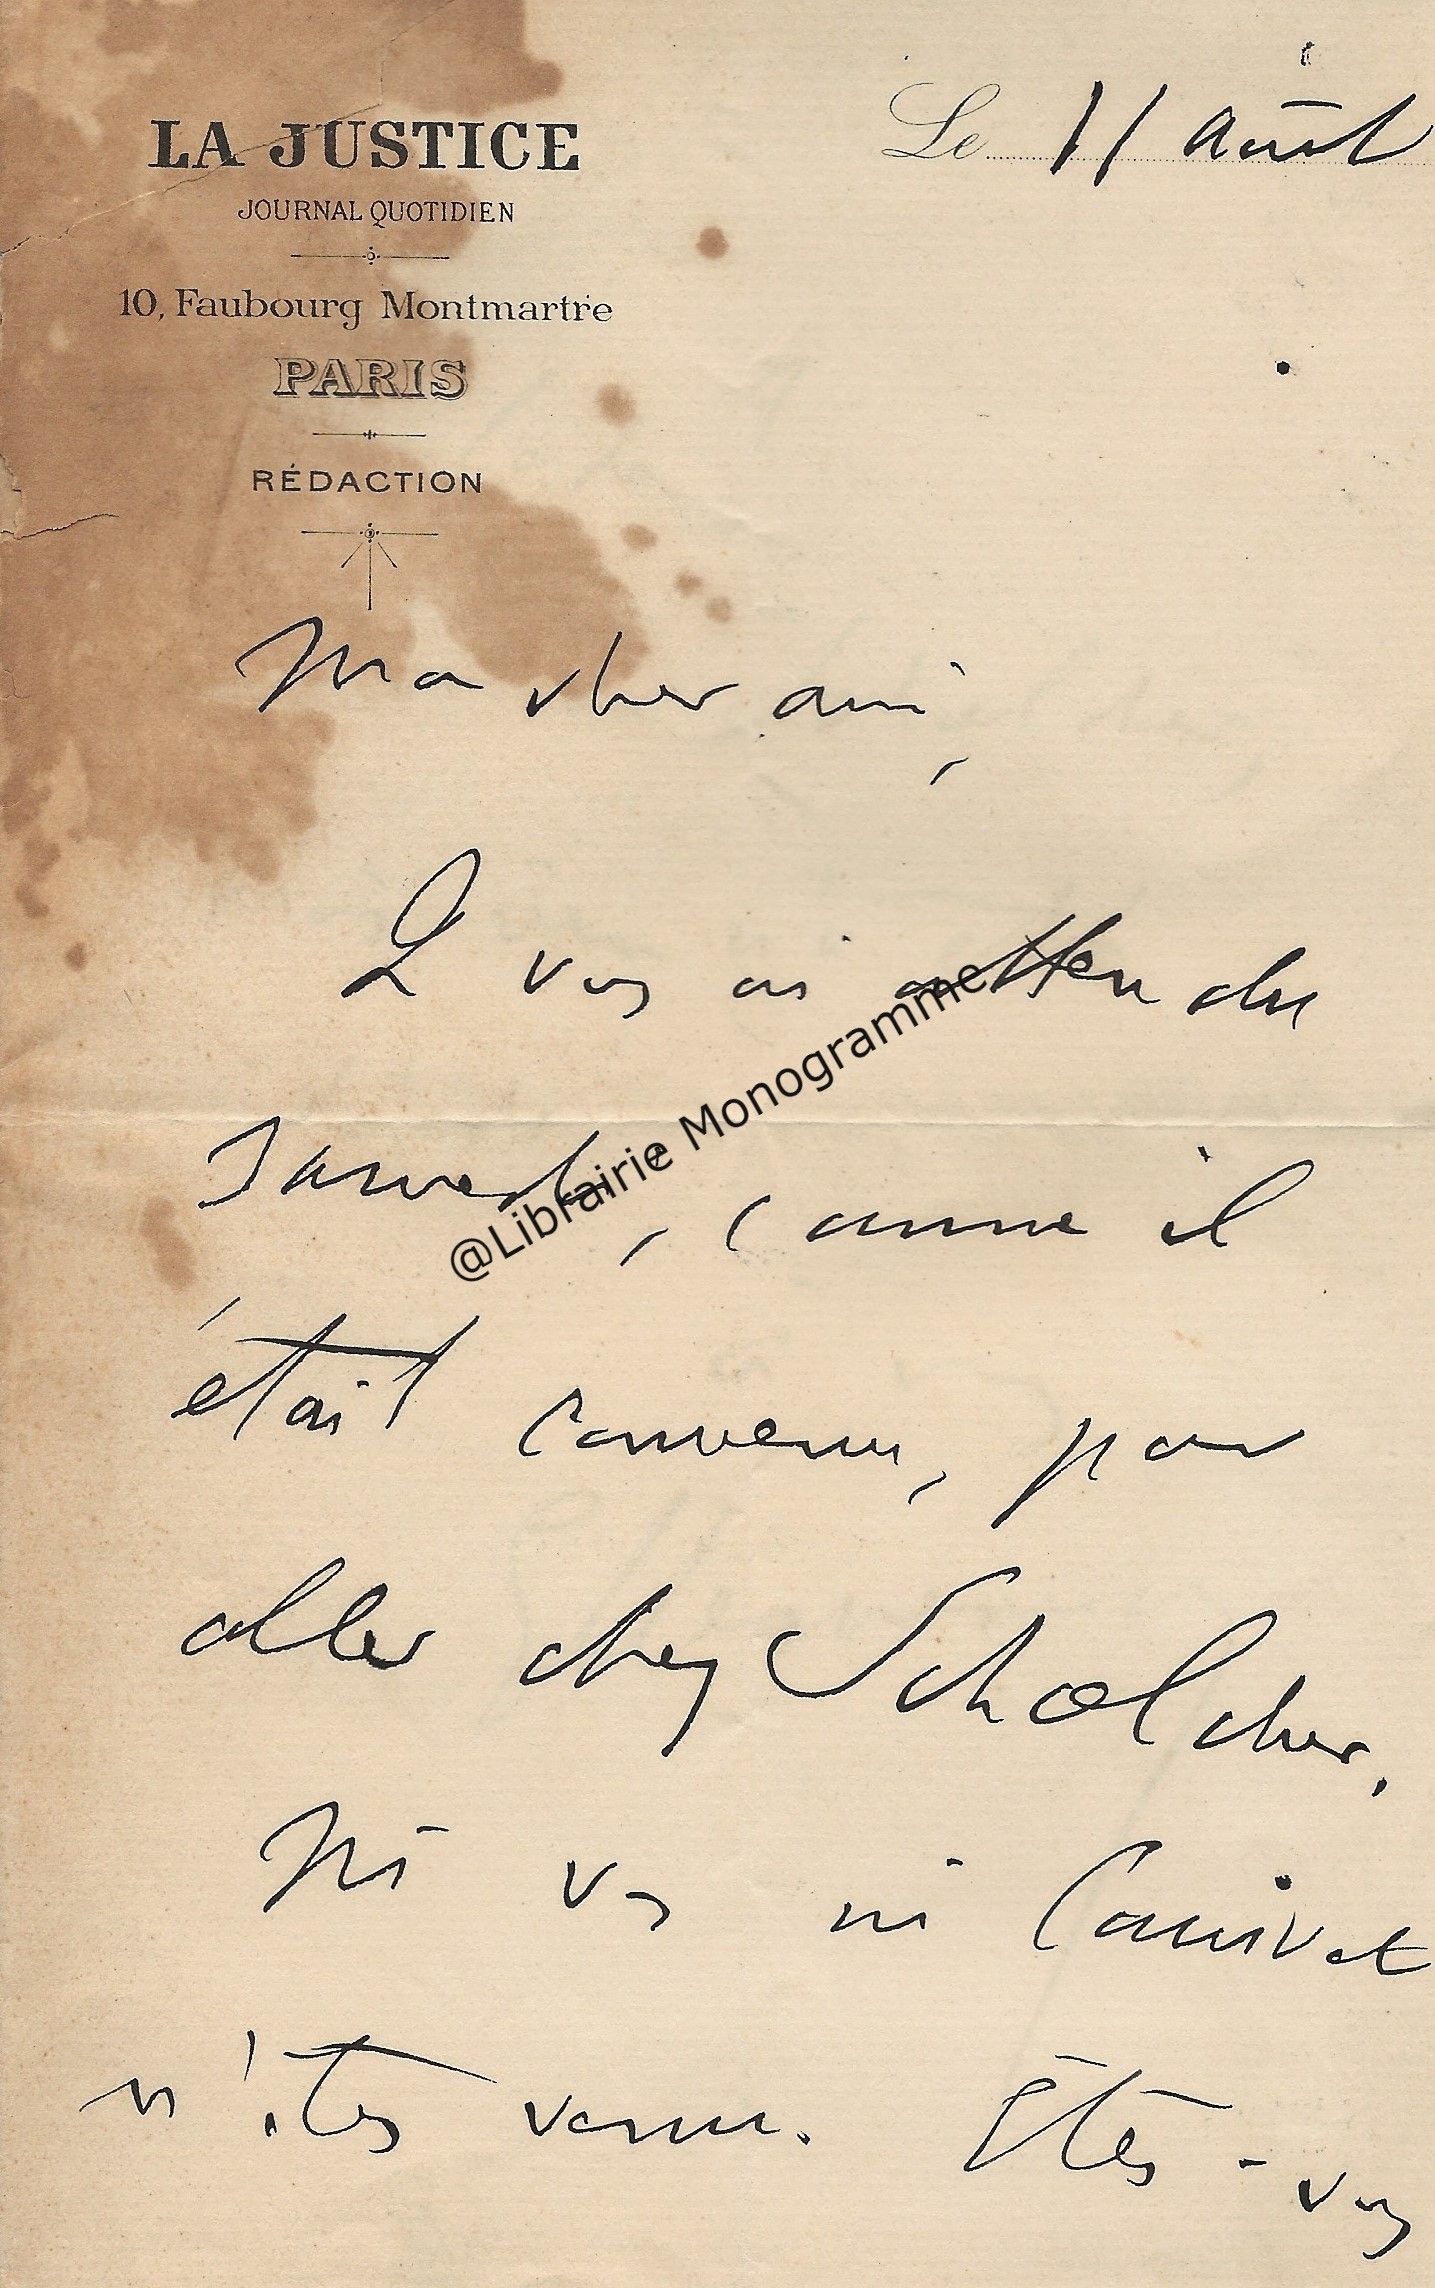 LA JUSTICE
JOURNAL QUOTIDIEN
10, Faubourg Montmartre
PARIS
RÉDACTION
Le 11 Août
Mon cher ami,
Je vous ai attendu
samedi, comme il
était convenu, pour
aller chez Schœlcher.
Ni vous ni Canivet
n'êtes venu. Êtes-vous
@Librairie Monogramme